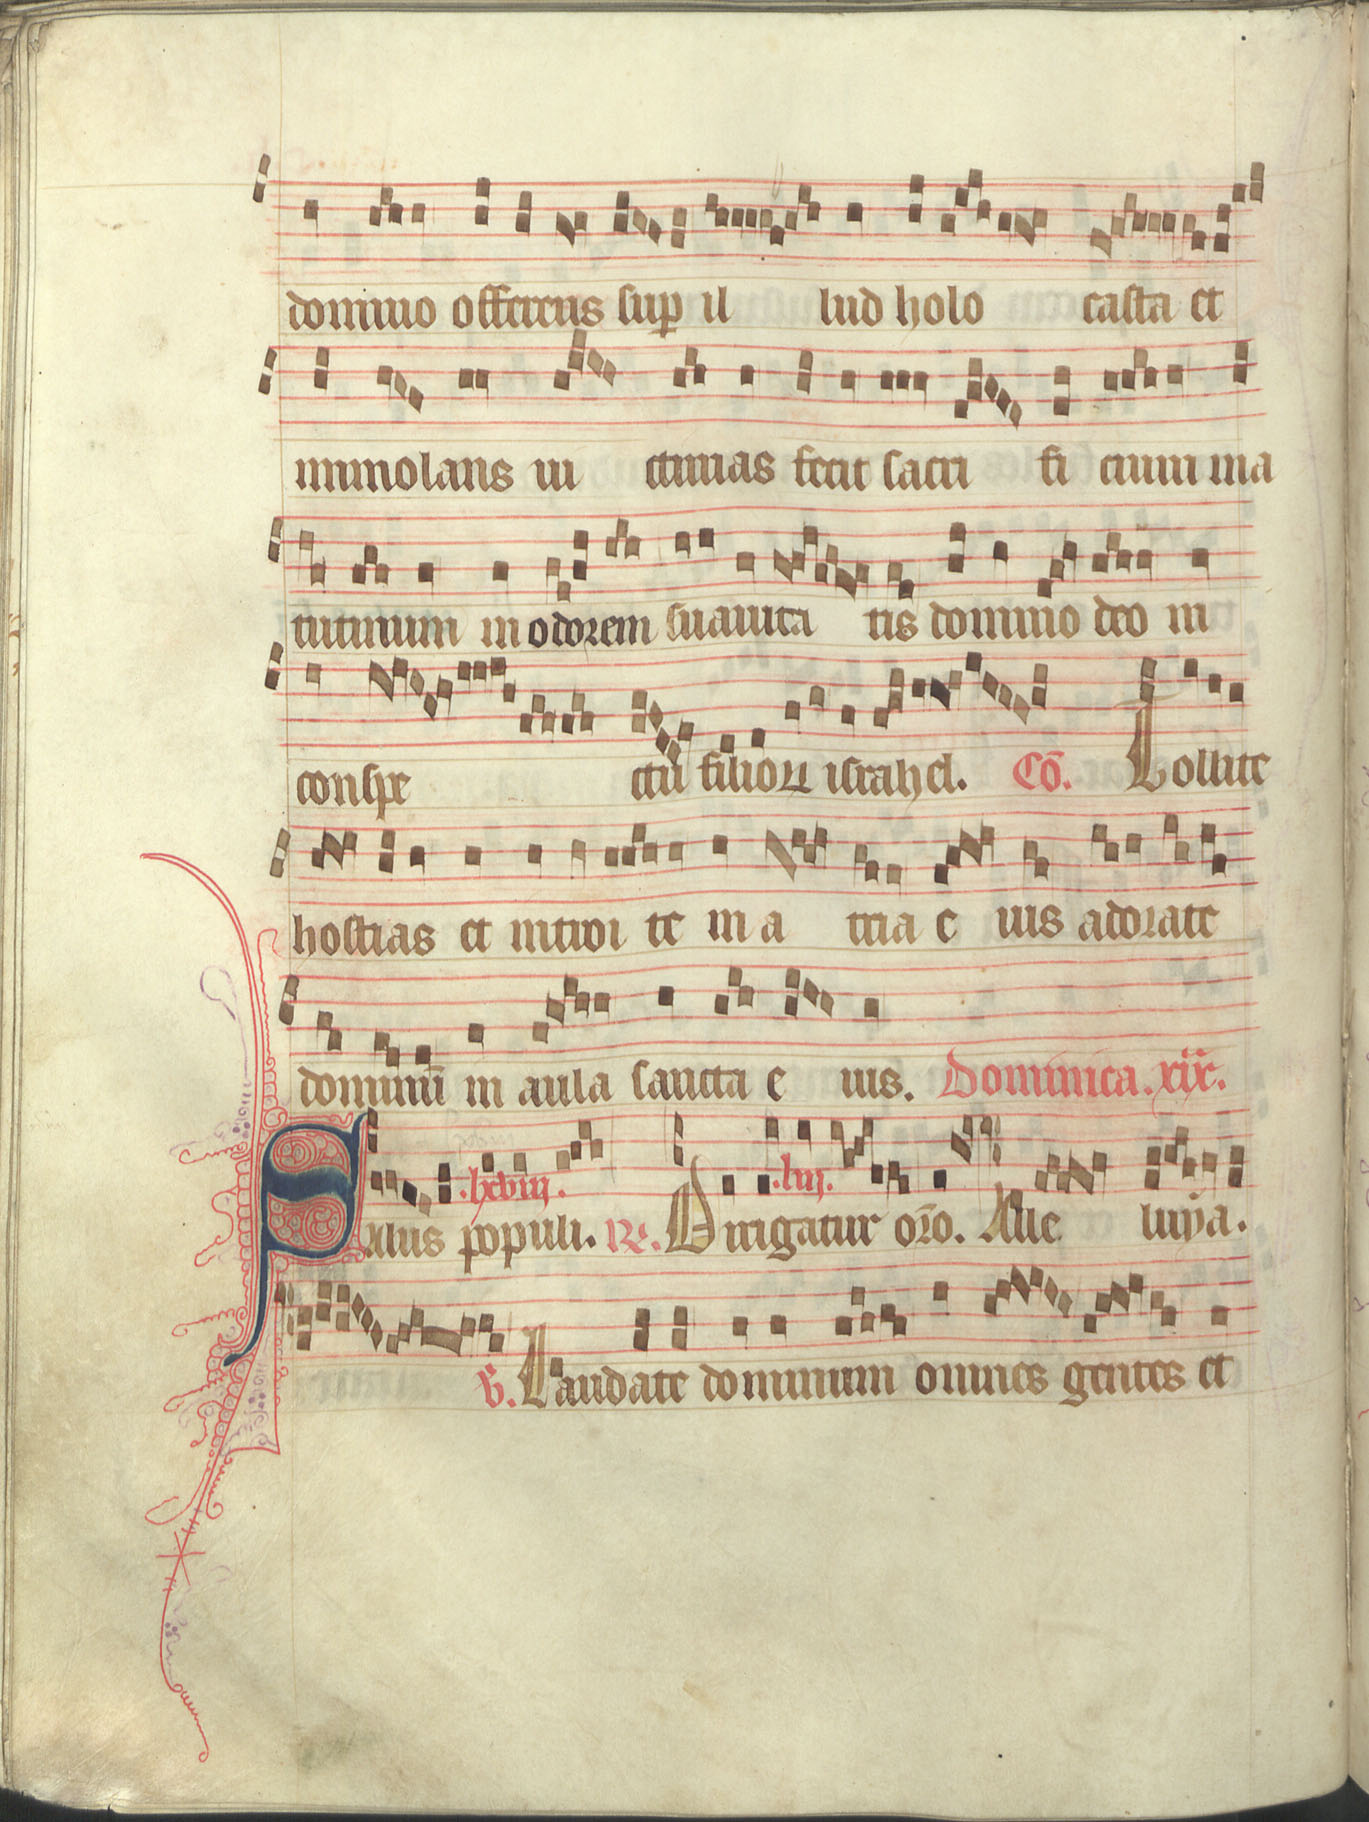 domino offerens sup il lud holo causta et
immolans ui ctimas fecit sacri fi cium ma
tutinum in odorem suauita tis domino deo in
conspe ctu filioꝝ israhel. Cō. Tollite
hostias et introi te in a tria e ius adorate
dominū in aula sancta e ius. Dominica .xix.
Salus .lxviii. populi. R. Dirigatur .liii. orō. Alle luya.
V. Laudate dominum omnes gentes et